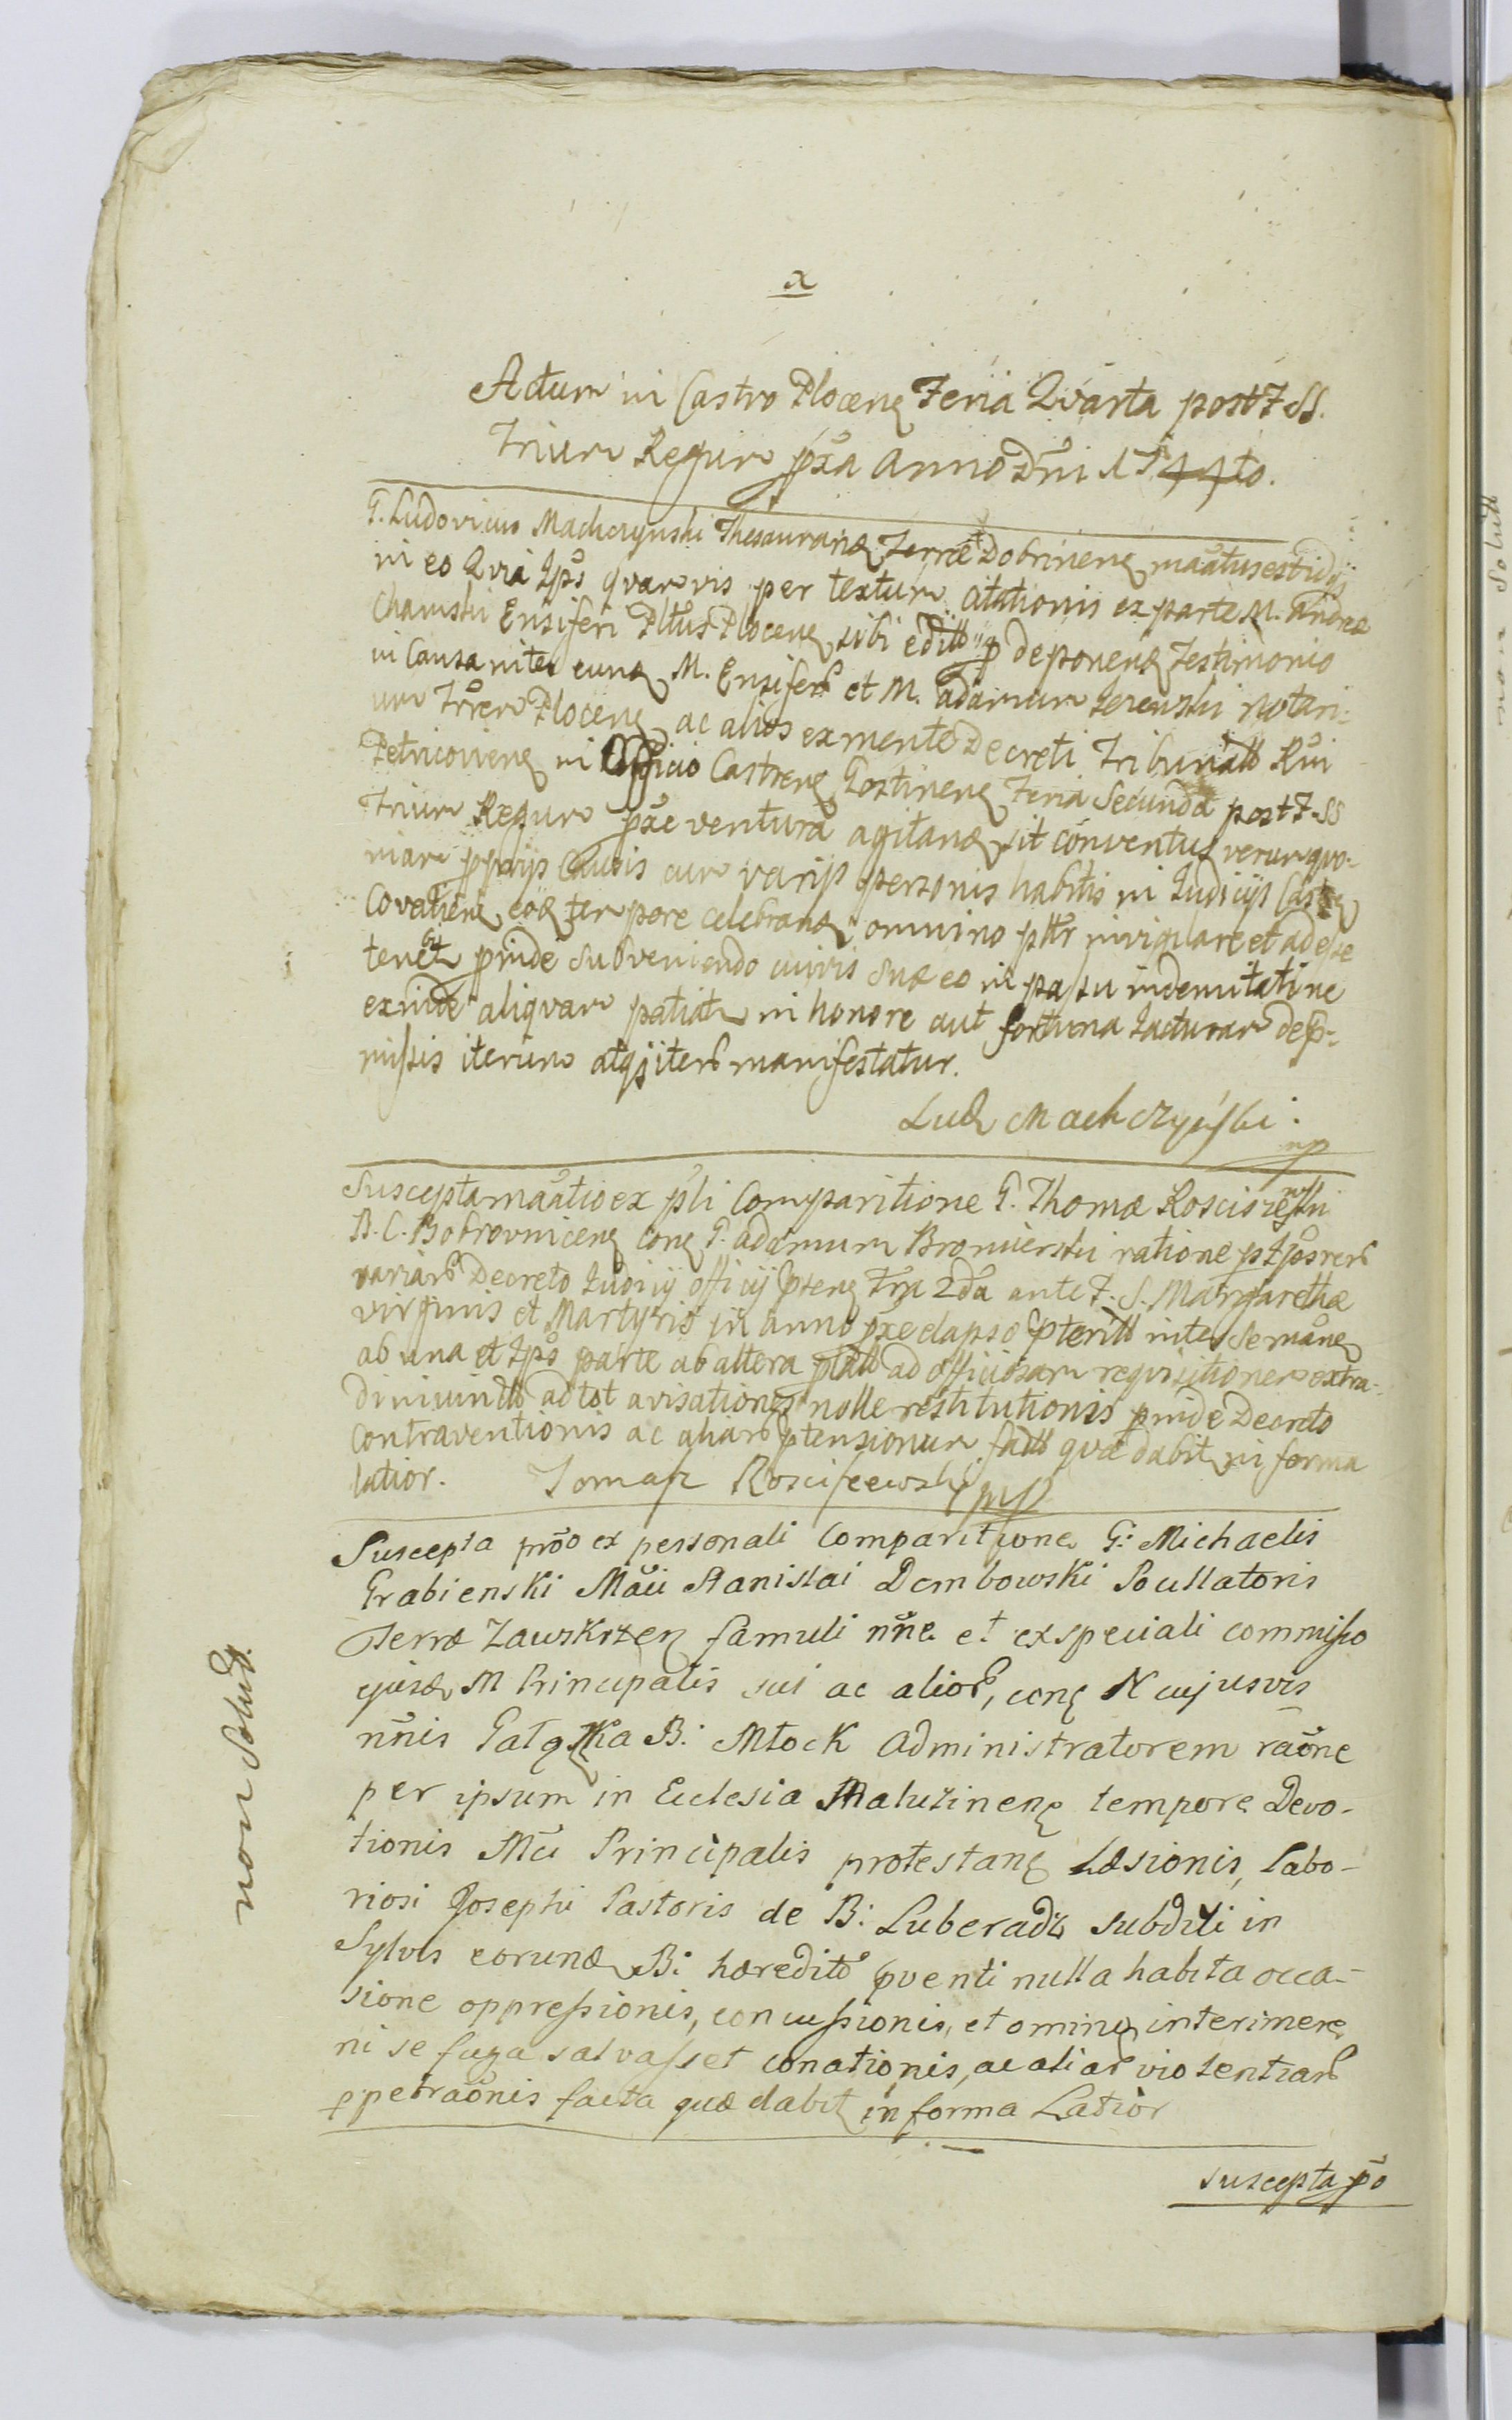 x
Actum in Castro Plocen Feria Quarta post F. SS.
Trium Regum pxa Anno Dni 1744to.
G. Ludovicus Machczynski Thesaurarid Terræ Dobrinen māatus est
in eo Quia Ips quamvis per textum citationis ex parte M. Andreæ
Chamski Ensiferi Pltus Plocen sibi edit p deponend Testimonio
in Causa inter eund M. Ensifer et M. Adamum Jezewski Notari-
um Trrem Plocen ac alios ex mente Decreti Tribunall Rni
Petricovien in Officio Castren Gostinen Feria Secunda post F. SS
Trium Regum pxe ventura agitand sit conventus verum quo-
niam pprijs Causis cum varijs personis habitis in Judicijs Castr
Covalien eod tempore celebrand omnino pltr invigilare et adesse
tenebit proinde subveniendo cuivis suæ eo in passu indemnitati ne
exinde aliquam patiat in honore aut fortuna Jacturam de p-
missis iterum atq iter manifestatur.
Lud Machczyński
mp
Suscepta māatio ex pli Comparitione G. Thomæ Rosciszewski
B. C. Bobrovnicen con G. Adamum Bromierski ratione p Ipos rer
variar Decreto Judicij officij pten Fra 2da ante F. S. Margarethæ
Virginis et Martyris in anno pxe elapso pterill inter se
ab una et Ips parte ab altera plall ad officiosam requisitionem extra-
ad tot avisationes nolle restitutionis proinde Decreto
contraventionis ac aliar ptensionum fall quæ dabit in forma
latior. Tomasz Rosciszewski mp
Suscepta prō ex personali Comparitione G: Michaelis
Grabienski Māci Stanislai Dembowski Pocillatoris
Terræ Zawskrzen famuli nne et ex speciali commisso
ejusd M Principalis sui ac alior, con N cujusvis
nnis Gałązka B: Młock Administratorem rāone
per ipsum in Ecclesia Maluzinen tempore Devo-
tionis Mci Principalis protestan Læsionis, Labo-
riosi Josephi Pastoris de B: Luberadz subditi in
Sylvis eorund B: hæredit pventi nulla habita occa-
sione oppressionis, concussionis, et omnino interimere,
ni se fuga salvasset conationis, ac aliar violentiar
ppetrāonis facta quæ dabit in forma Latior
suscepta pō
non Solut